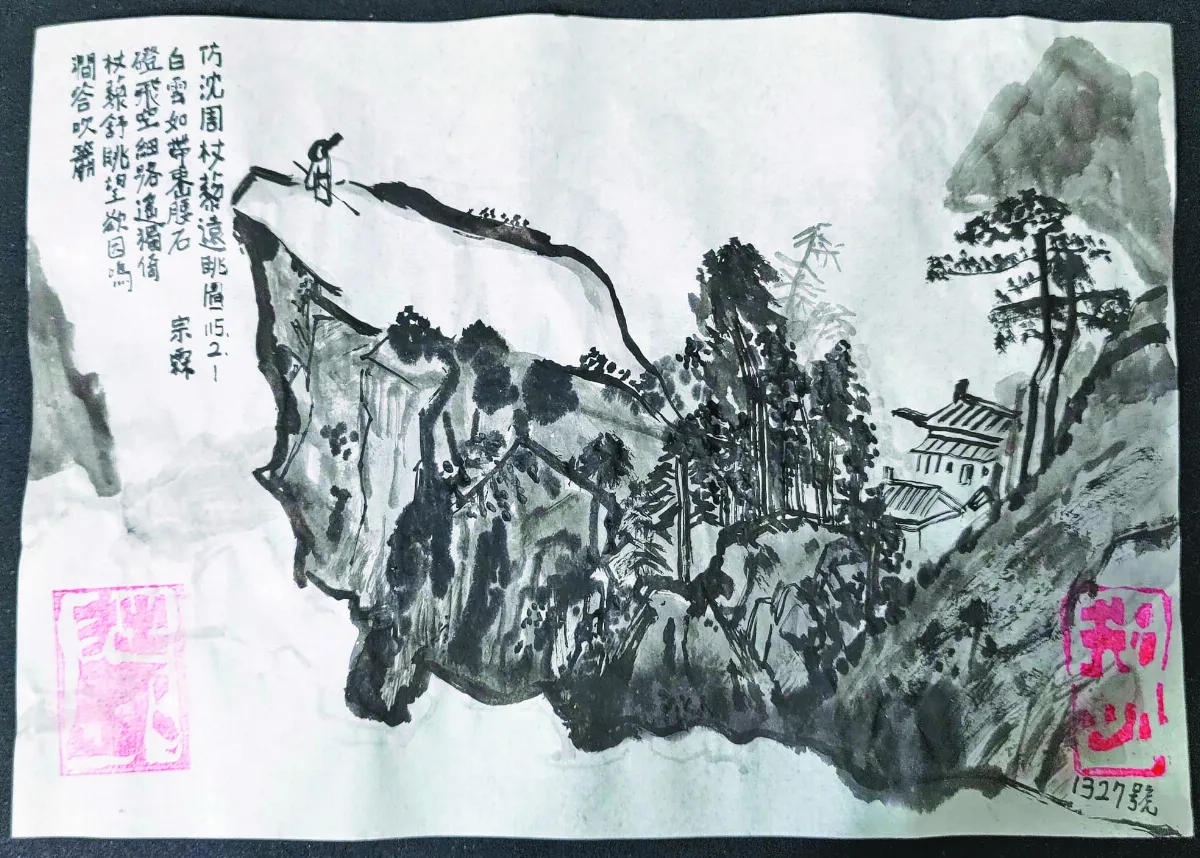 仿沈周杖藜遠眺圖 115.2.1
白雲如帶束腰石
磴飛空細路遙獨倚
杖藜舒眺望欲因鳴
澗答吹簫
宗霖
1327號